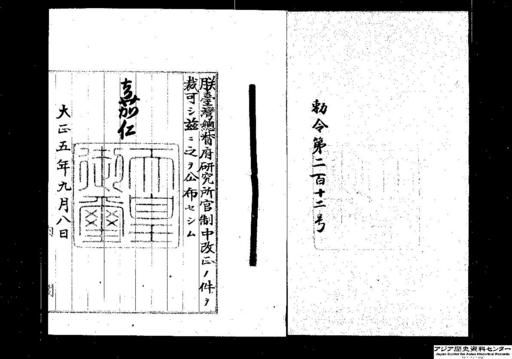 勅令第二百十二号
朕臺灣總督府研究所官制中改正ノ件ヲ
裁可シ茲ニ之ヲ公布セシム
嘉仁
天皇御璽
大正五年九月八日
アジア歴史資料センター
Japan Center for Asian Historical Records